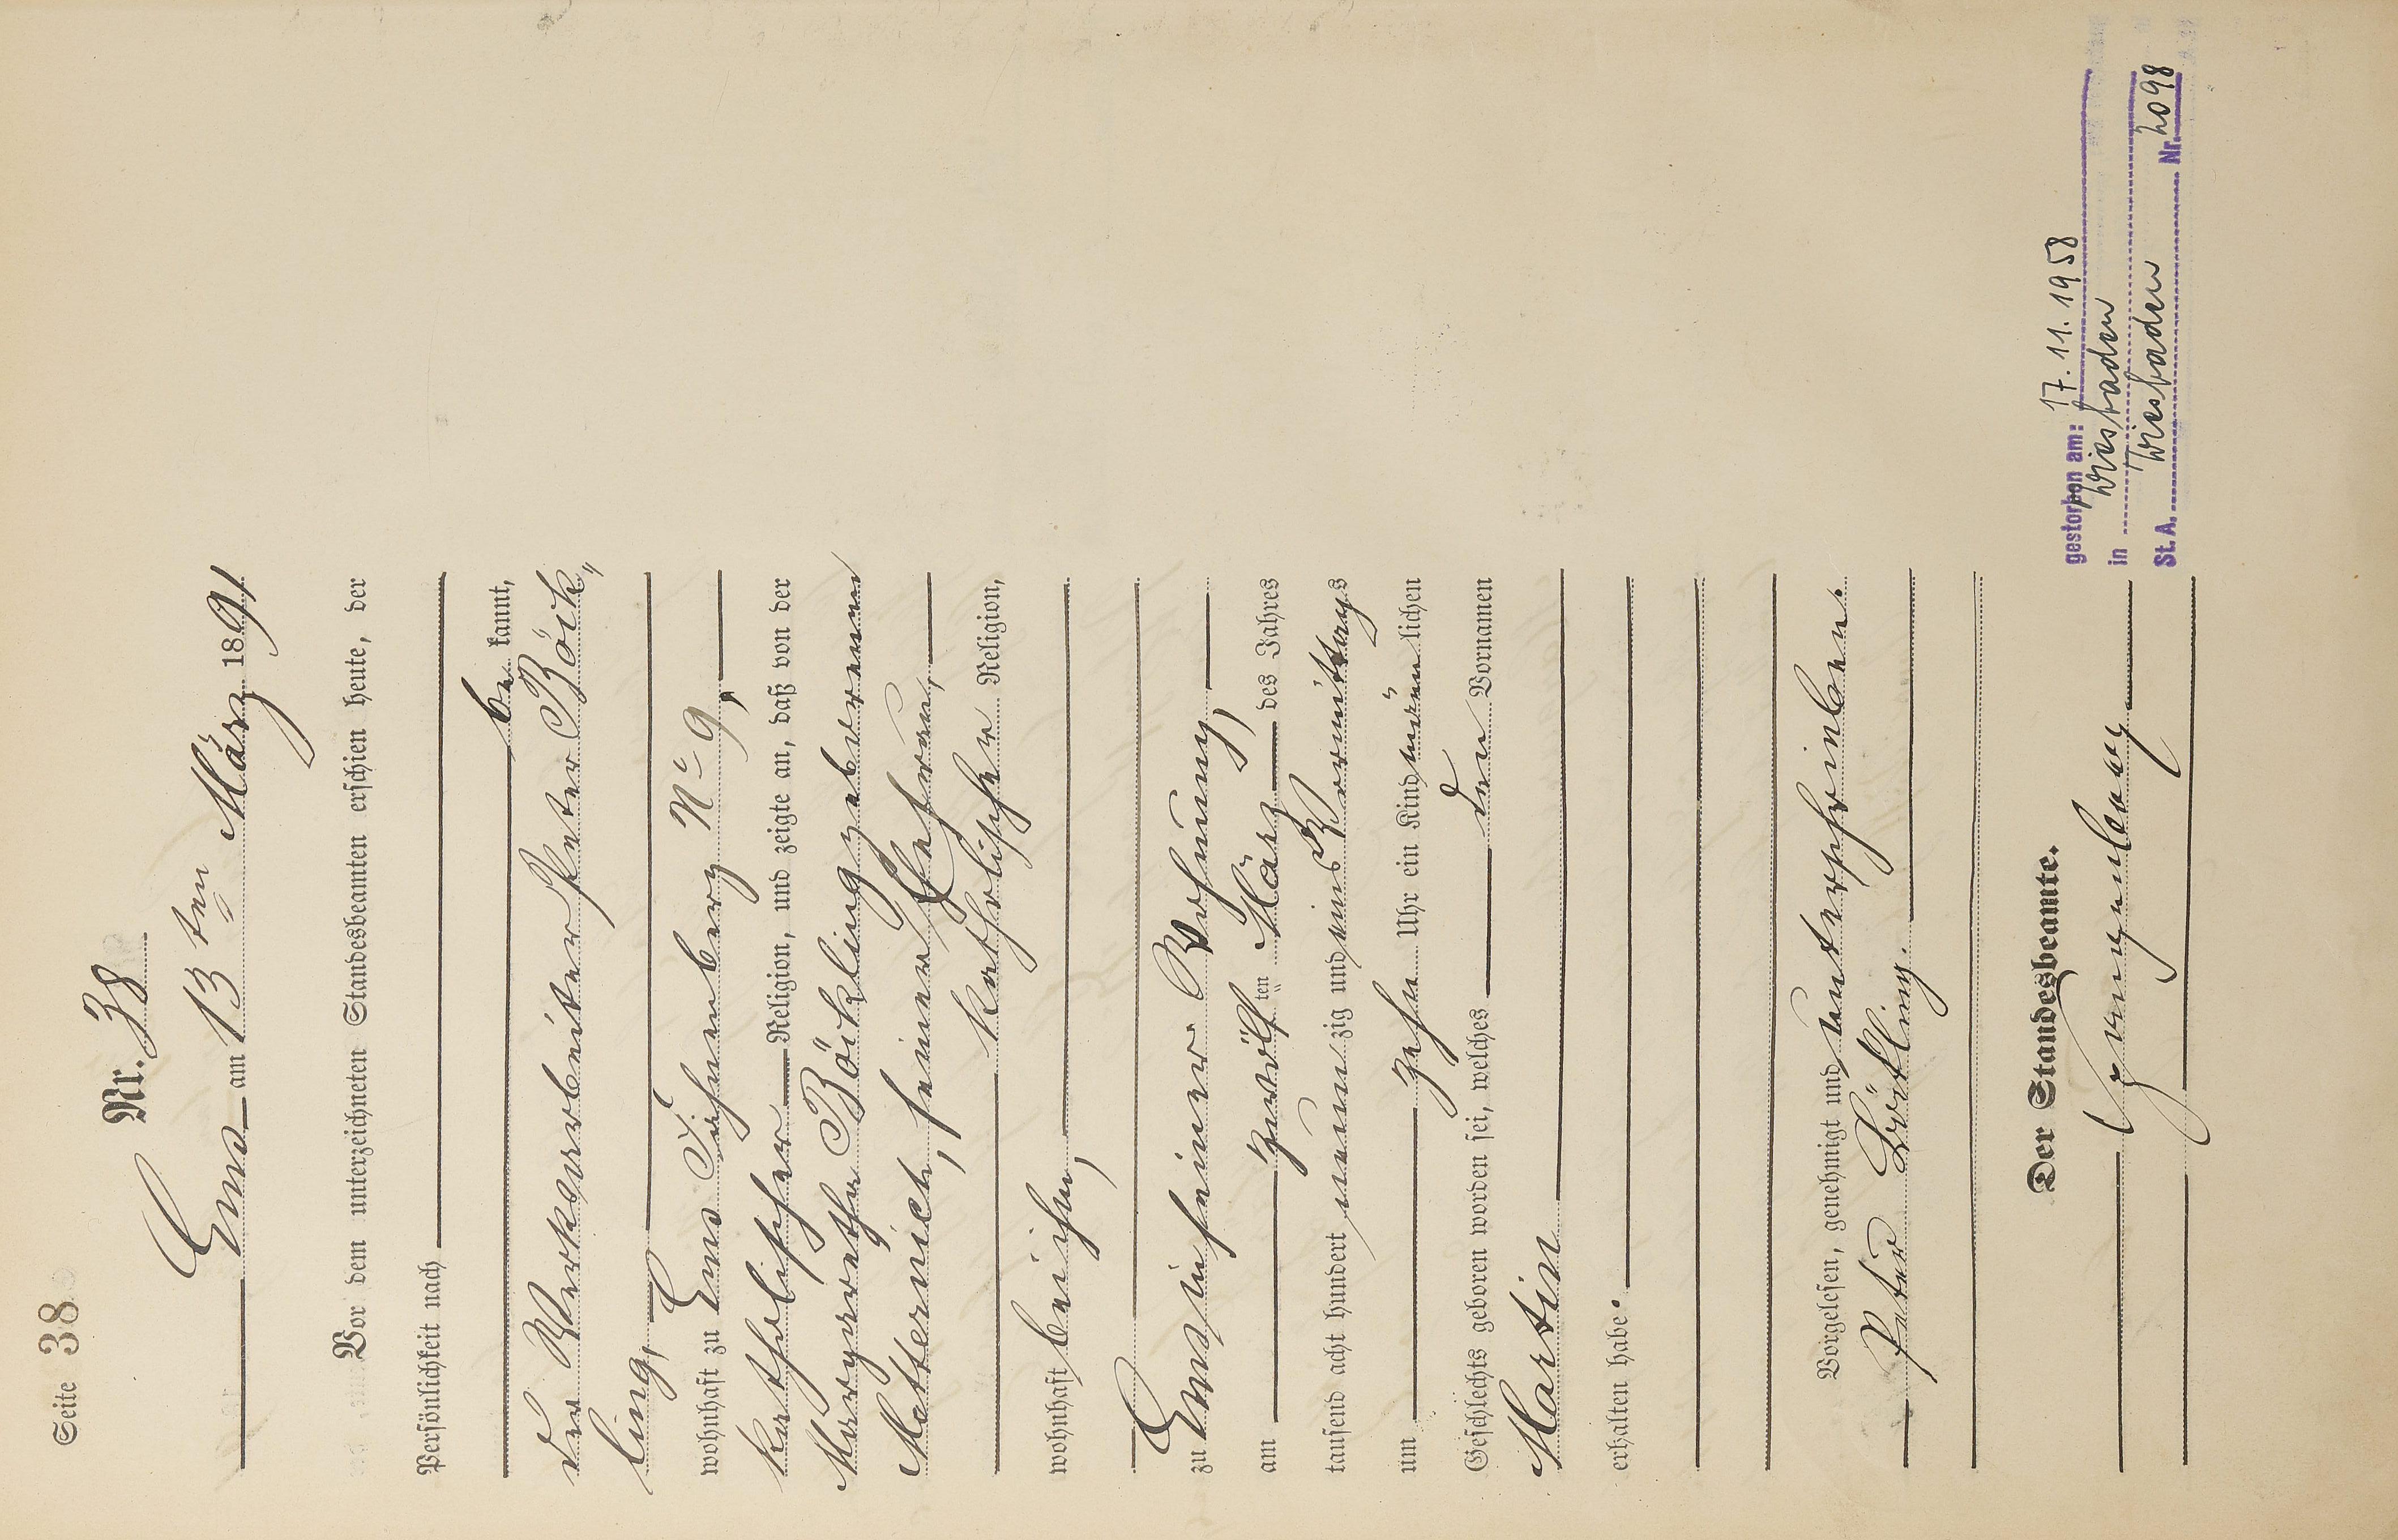 Seite 38
Nr. 38
Ems am 13 ten März 1891
Vor dem unterzeichneten Standesbeamten erschien heute, der
Persönlichkeit nach
be kannt,
der Werksarbeiter Peter Böck„
ling,
wohnhaft zu Ems Pichenberg No 9,
katholischer Religion, und zeigte an, daß von der
Margarethe Böckling geborenen
Metternich, seiner Ehefrau,
katholischer Religion,
wohnhaft bei ihm,
zu Ems in seiner Wohnung,
am zwölf ten März des Jahres
tausend acht hundert neunzig und eins Vormittags
um zehn Uhr ein Kind männlichen
Geschlechts geboren worden sei, welches den Vornamen
Martin
erhalten habe.
Vorgelesen, genehmigt und unterschrieben.
Peter Bökling.
Der Standesbeamte.
gestorben am: 17.11.1958
in Wiesbaden
St. A. Wiesbaden Nr. 2098